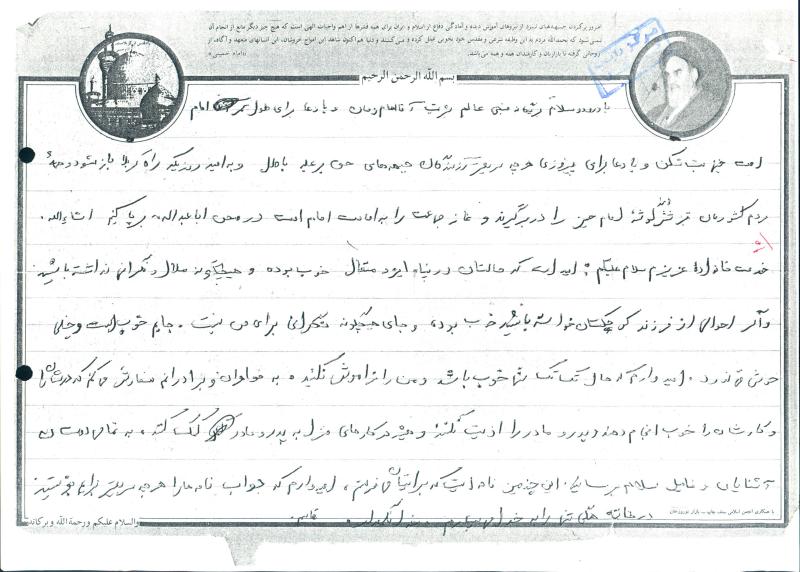 امروز پرکردن جبهه‌های نبرد از نیروهای آموزش دیده و آمادگی دفاع از اسلام و ایران برای همه قشرها از اهم واجبات الهی است که هیچ چیز دیگر مانع از انجام آن
نمی‌شود که بحمدالله مردم به این وظیفه شرعی و مقدس خود بخوبی عمل کرده و می‌کنند و دنیا هم اکنون شاهد این امواج خروشان، این انسانهای متعهد و آگاه، از
روحانی گرفته تا بازاریان و کارمندان همه و همه می‌باشد. «امام خمینی»
بسم الله الرحمن الرحیم
با درود و سلام به منجی عالم بشریت آقا امام زمان و با دعا برای طول عمر امام
امت خمینی بت شکن و با دعا برای پیروزی هرچه سریعتر رزمندگان جبهه‌های حق بر علیه باطل و به امید روزیکه راه کربلا باز شود و همه
مردم کشورمان قبر شش گوشه امام حسین را در بر گیرند و نماز جماعت را به امامت امام امت در صحن اباعبدالله بر پا کنیم انشاءالله.
خدمت خانواده عزیزم سلام علیکم؛ امید است که حالتان در پناه ایزد متعال خوب بوده و هیچگونه ملال و نگرانی نداشته باشید
و اگر احوالی از فرزند کوچکتان خواسته باشید خوب بوده و جای هیچگونه نگرانی برای من نیست. جایم خوب است و خیلی
خوش میگذرد. امیدوارم که حال تک تک شما خوب باشد و من را فراموش نکنید، به خواهران و برادرانم سفارش می کنم که درسشان را
و کارشان را خوب انجام دهند و پدر و مادر را اذیت نکنند و همیشه در کارهای منزل به پدر و مادر کمک کنند، به تمامی دوستان
آشنایان و فامیل سلام برسانید. این چندمین نامه است که برایتان می فرستم، امیدوارم که جواب نامه ما را هرچه سریعتر برایم بنویسید
در خاتمه همگی شما را به خدا می سپارم. خدا نگهدار.
والسلام علیکم ورحمة الله و برکاته